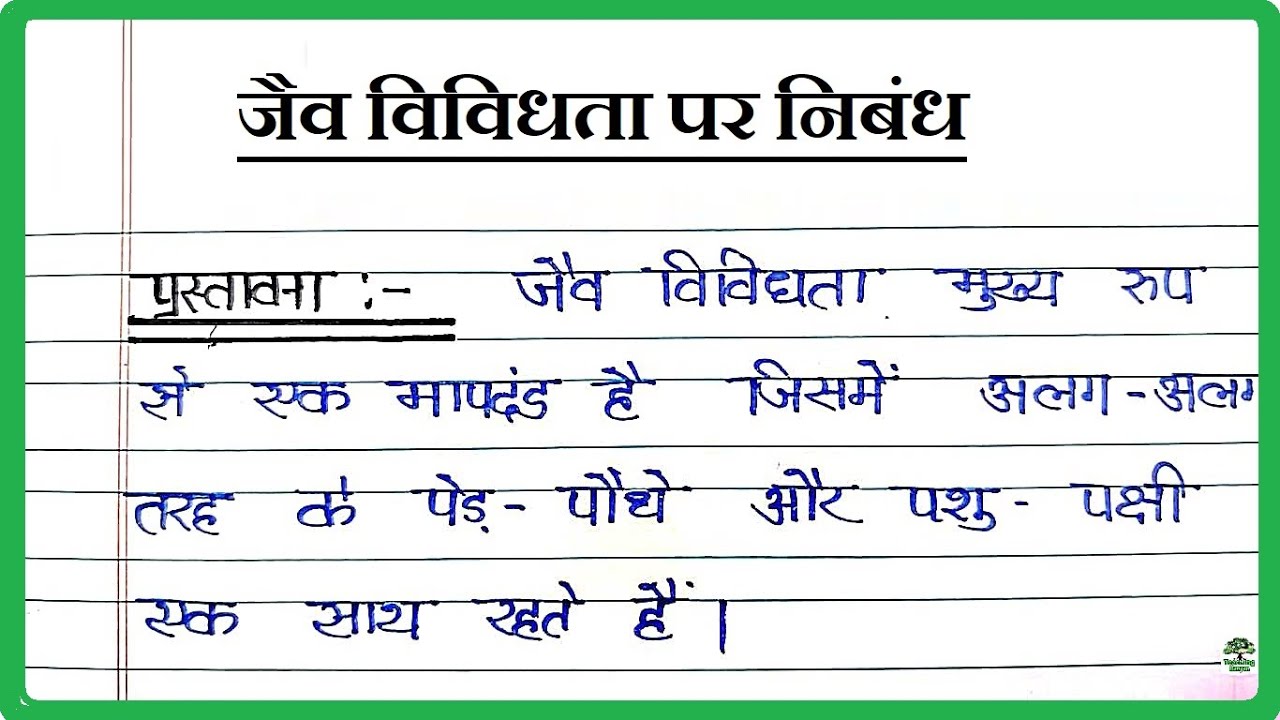 जैव विविधता पर निबंध
प्रस्तावना :- जैव विविधता मुख्य रुप
से एक मापदंड है जिसमें अलग-अलग
तरह के पेड़-पौधे और पशु-पक्षी
एक साथ रहते हैं।